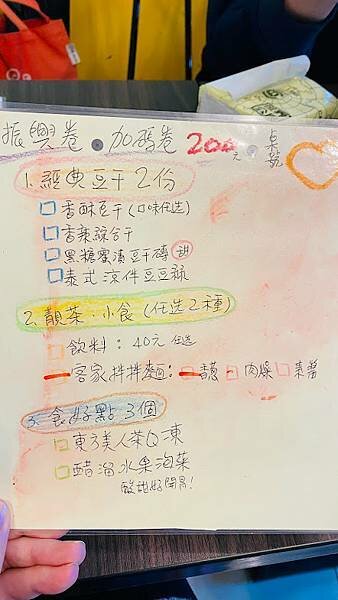 振興卷·加碼卷200元 桌號
1.經典豆干2份
香酥豆干(口味任选)
香辣綜合干
黑糖蜜漬豆干磚 甜
泰式涼伴豆豆絲
2.靚茶·小食(任选2種)
飲料:40元任选
客家拌拌麵:香蔥 肉燥 素醬
3.食好點3個
東方美人茶Q凍
醋溜水果泡菜
酸甜好開胃!